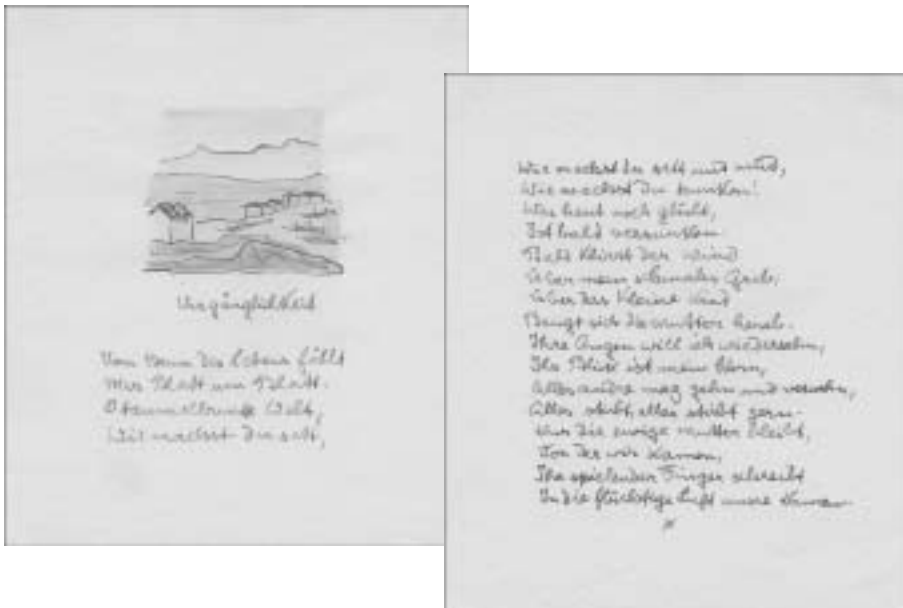 Vergänglichkeit
Vom Baum des Lebens fällt
Mir Blatt um Blatt.
O taumelbunte Welt,
Wie machst du satt,
Wie machst du satt und müd,
Wie machst du trunken!
Was heut noch glüht,
Ist bald versunken.
Bald klirrt der Wind
Über mein Grab,
Über das kleine Kind
Beugt sich die Mutter herab.
Ihre Augen will ich wiedersehn,
Ihr Blick ist mein Stern,
Alles andre mag gehn und verwehn,
Alles stirbt, alles stirbt gern.
Nur die ewige Mutter bleibt,
Von der wir kamen,
Ihr spielender Finger schreibt
In die flüchtige Luft unsre Namen